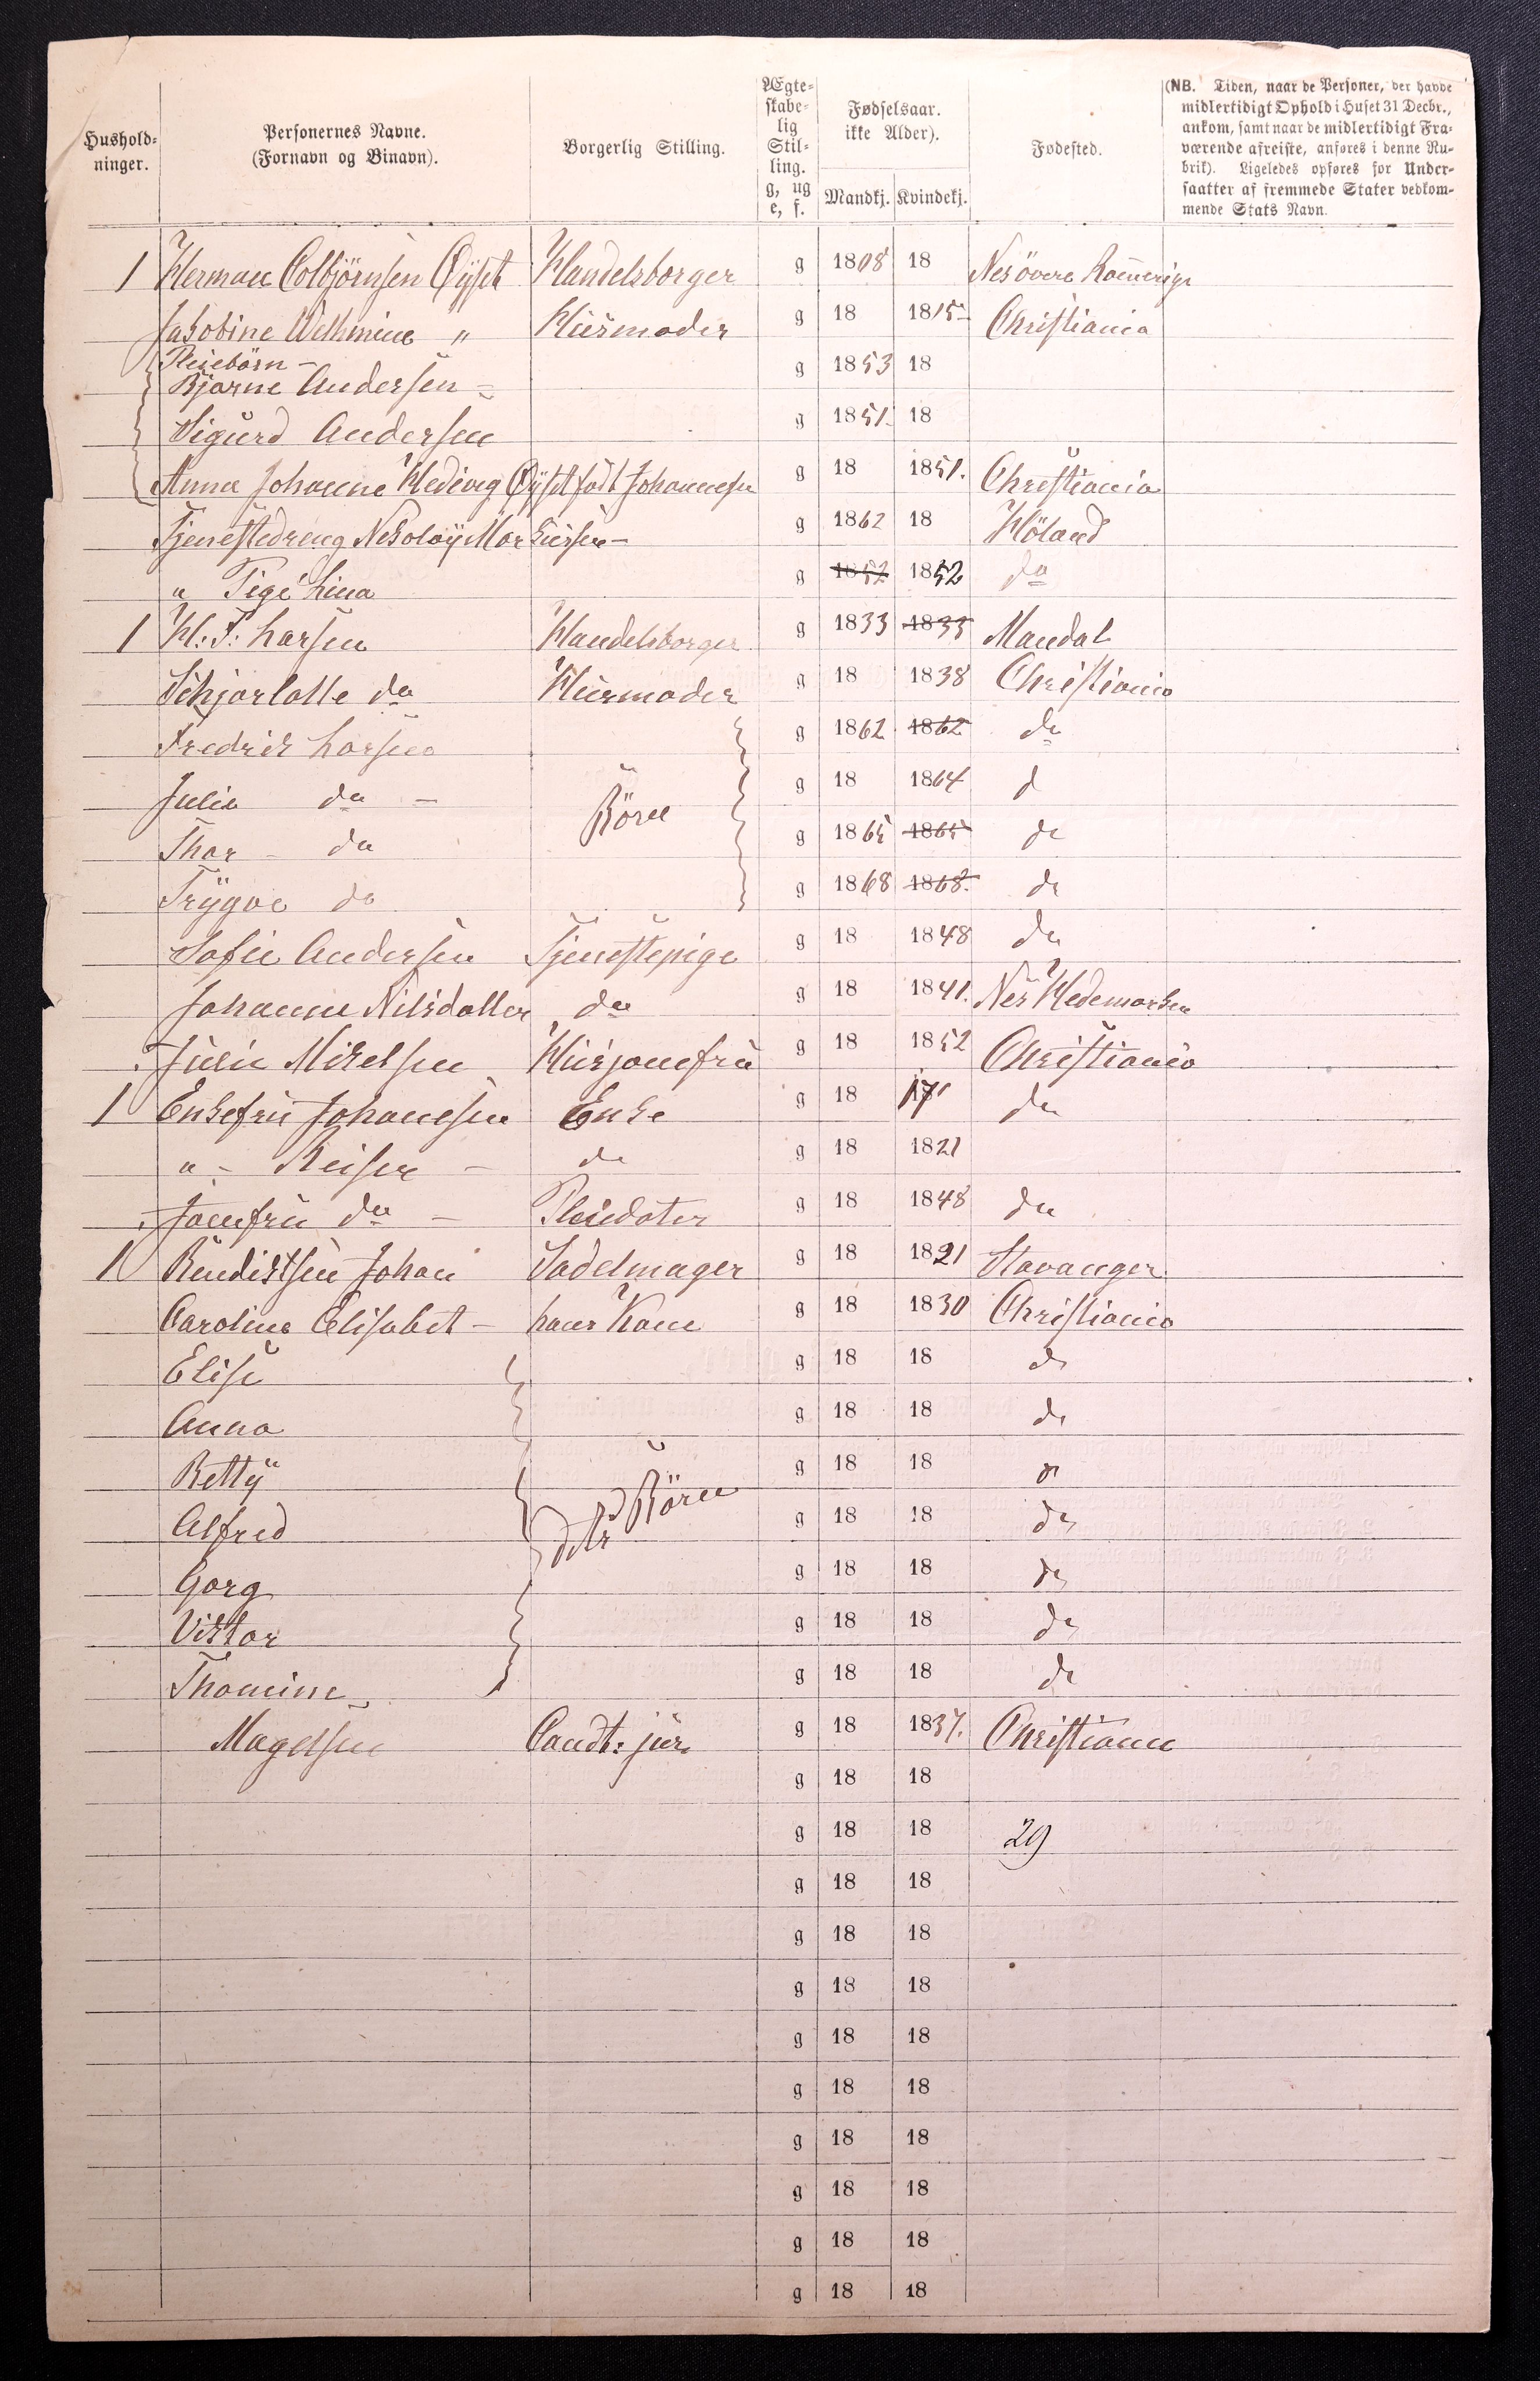 Hushold-
ninger.
Personernes Navne.
(Fornavn og Binavn).
Borgerlig Stilling.
Ægte-
skabe-
lig
Stil-
ling.
g, ug
e, f.
Fødselsaar.
ikke Alder).
Mandkj. Kvindekj.
Fødested.
(NB. Tiden, naar de Personer, der havde
midlertidigt Ophold i Huset 31 Decbr.,
ankom, samt naar de midlertidigt Fra-
værende afreiste, anføres i denne Ru-
brik). Ligeledes opføres for Under-
saatter af fremmede Stater vedkom-
mende Stats Navn.
1 Herman Colbjörnsen Öyset Handelsborger g 1808 18 Nes övere Romerige
Jakobine Wilhmine " Husmoder g 18 1815 Christiania
Pleiebörn –
Bjarne Andersen – g 1853 18
Sigurd Andersen g 1851. 18
Anna Johanne Hedevig Öyset födt Johannesen g 18 1851. Christiania
Tjenestedreng Nikolay Markusen – g 1862 18 Höland
" Pige Lina g 1852 1852 do
1 H: F: Larsen Handelsborger g 1833 1833 Mandal
Schjarlotte do Husmoder g 18 1838 Christiania
Fredrik Larsen g 1862 1862 do
Julie do – Börn g 18 1864 d
Thor – do g 1865 1865 do
Trygve do g 1868 1868. do
Sofie Andersen Tjenestepige g 18 1848 do
Johanne Nilsdatter do g 18 1841. Nes Hedemarken
Julie Mikelsen Husjomfru g 18 1852 Christiania
1 Enkefru Johanesen Enke g 18 do
" – Reiser – do g 18 1821
Jomfru do – Pleiedoter g 18 1848 do
1 Bendiktsen Johan Sadelmager g 18 1821 Stavanger
Caroline Elisabet – hans Kone g 18 1830 Christiania
Elise g 18 18 do
Anna g 18 18 do
Betty g 18 18 do
Alfred ders Börn g 18 18 do
Gorg g 18 18 do
Viktor g 18 18 do
Thomine g 18 18 do
Magelsen Candt: jur. g 18 1837. Christiania
g 18 18
g 18 18 29
g 18 18
g 18 18
g 18 18
g 18 18
g 18 18
g 18 18
g 18 18
g 18 18
g 18 18